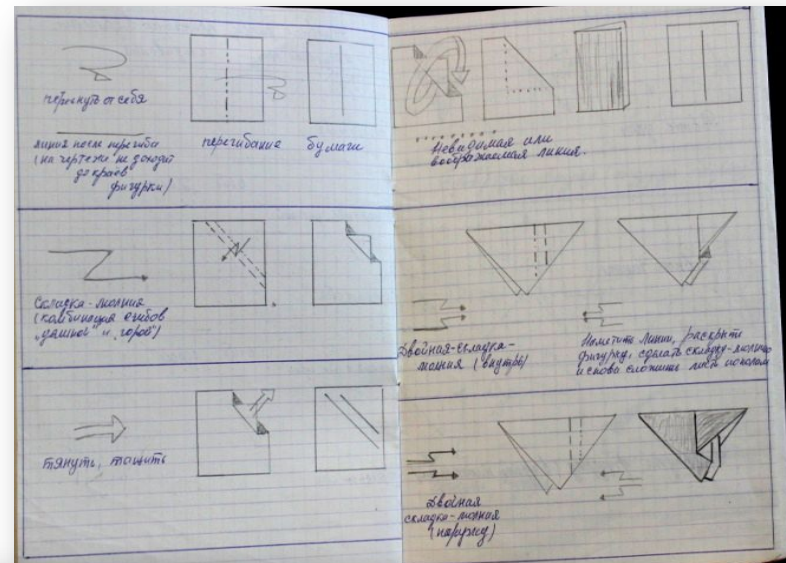 перегнуть от себя
линия после перегиба
(на чертеже не доходит
до краёв
фигурки)
перегибание бумаги
Складка-молния
(комбинация сгибов
„долиной" и „горой")
тянуть, тащить
Невидимая или
воображаемая линия.
Двойная-складка-
молния (внутрь)
Наметить линии, раскрыть
фигурку, сделать складку-молнию
и снова сложить лист пополам
Двойная
складка-молния
(наружу)